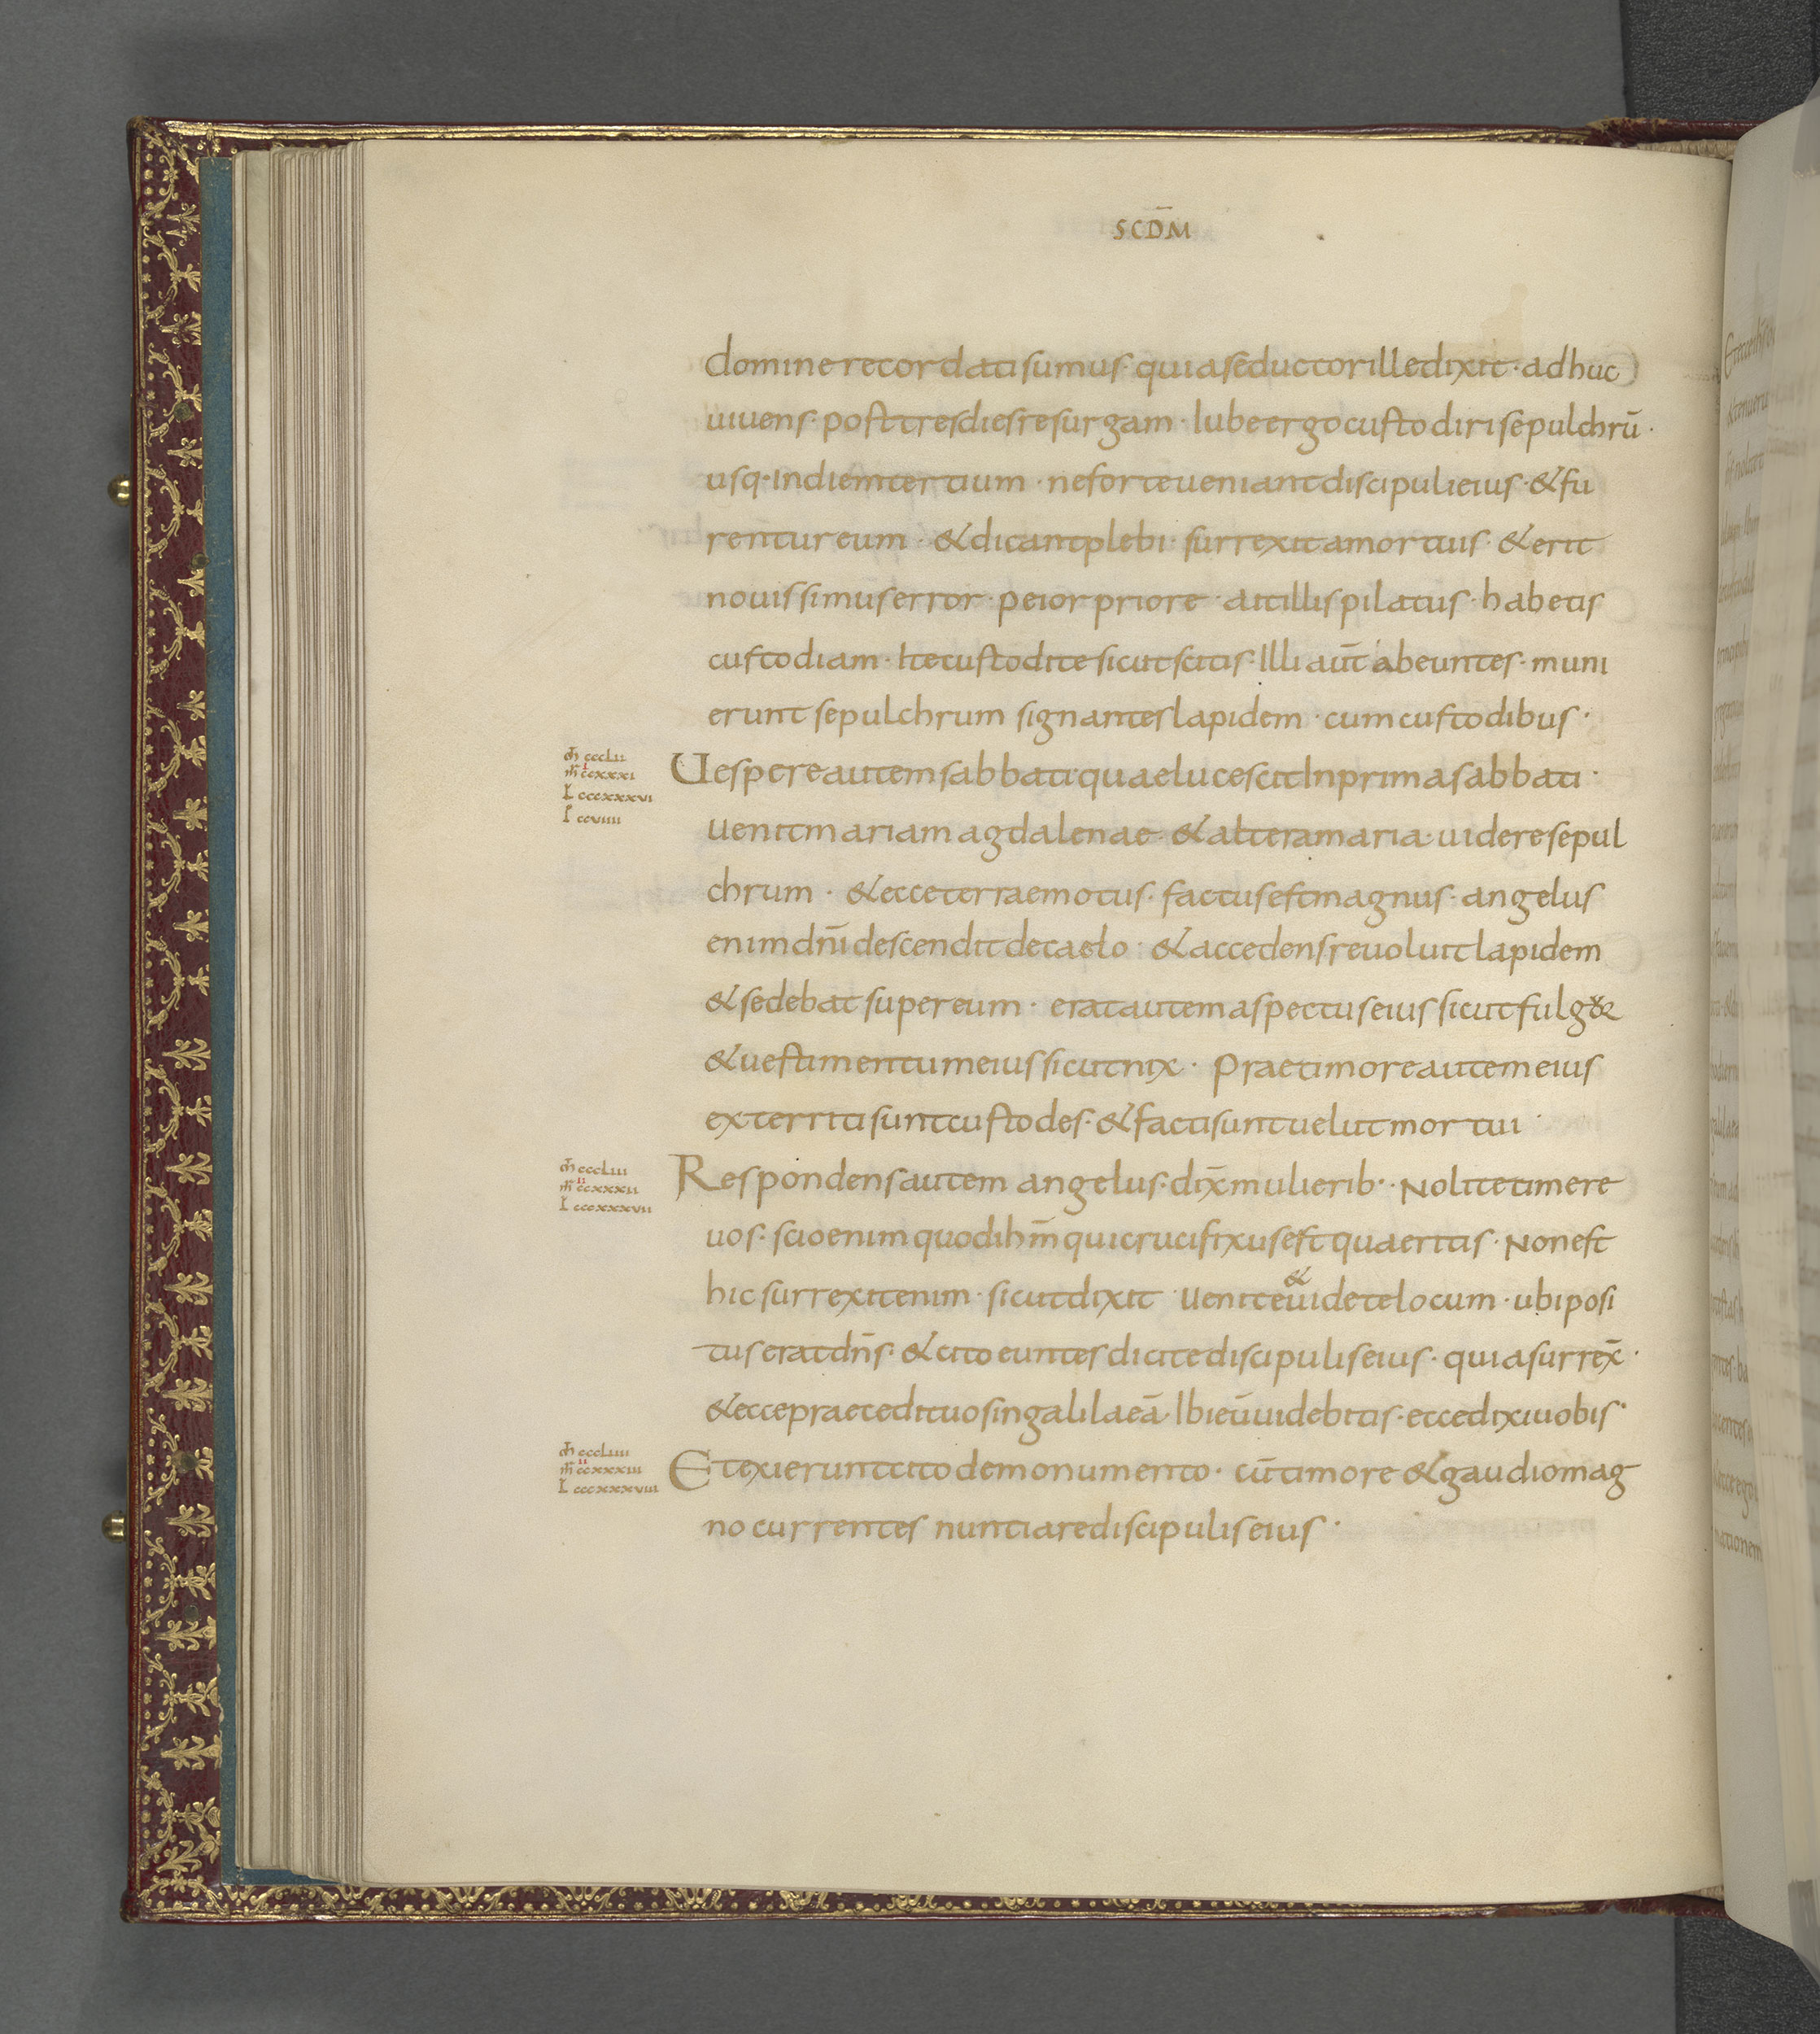 SCD̄M
domine recordati sumus· quia seductor ille dixit· adhuc
uiuens· post tres dies resurgam· Iube ergo custodiri sepulchrū·
usq· In diem tertium· ne forte ueniant discipuli eius· & fu
rentur eum· & dicant plebi· surrexit a mortuis· & erit
nouissimus error· peior priore· ait illis pilatus· habetis
custodiam· Ite custodite sicut scitis· Illi aut̄ abeuntes· muni
erunt sepulchrum signantes lapidem· cum custodibus·
m̄ ccclii
m̄ ccxxxi
l̄ cccxxxvi
ī ccviiii
Uespere autem sabbati· quae lucescit In prima sabbati·
uenit mariam agdalenae· & altera maria· uidere sepul
chrum· & ecce terrae motus· factus est magnus· angelus
enim dn̄i descendit de caelo· & accedens reuoluit lapidem
& sedebat super eum· erat autem aspectus eius sicut fulg&
& uestimentum eius sicut nix· Prae timore autem eius
exterriti sunt custodes· & facti sunt uelut mortui·
m̄ cccliii
m̄ ccxxxii
l̄ cccxxxvii
Respondens autem angelus· dix̄ mulierib·· Nolite timere
uos· scio enim quod ihm̄ qui crucifixus est quaeritis· Non est
hic surrexit enim· sicut dixit· uenite & uidete locum· ubi posi
tus erat dn̄s· & cito euntes dicite discipulis eius· quia surrex̄·
& ecce praecedit uos in galilaeā· Ibi eū uidebitis· ecce dixi uobis·
m̄ cccliiii
ii
m̄ ccxxxiii
l̄ cccxxxviii
Et exierunt cito de monumento· cū timore & gaudio mag
no currentes nuntiare discipulis eius·